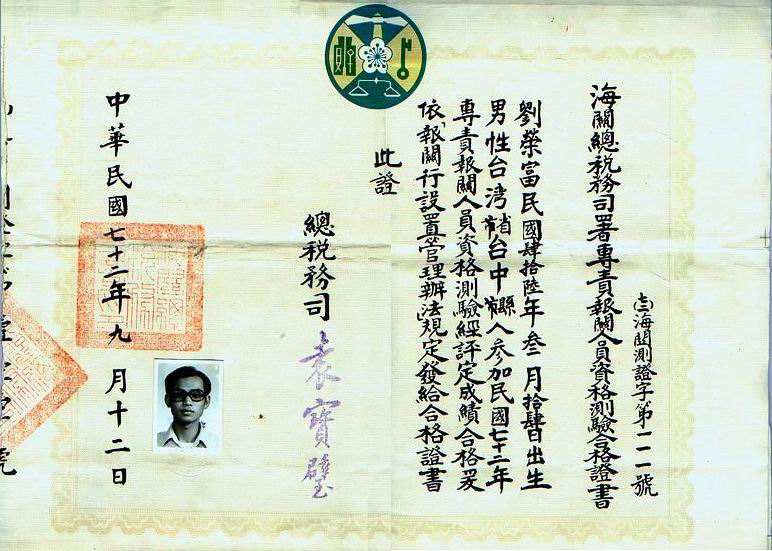 海關總税務司署專責報關人員資格測驗合格證書
海關測證字第一一一號
劉榮富民國肆拾陸年叁月拾肆日出生
男性台湾省市台中縣市人參加民國七十二年
專責報關人員資格測驗經評定成績合格爰
依「報關行設置管理辦法」規定發給合格證書
此證
總税務司
袁寶璧
中華民國七十二年九月十二日